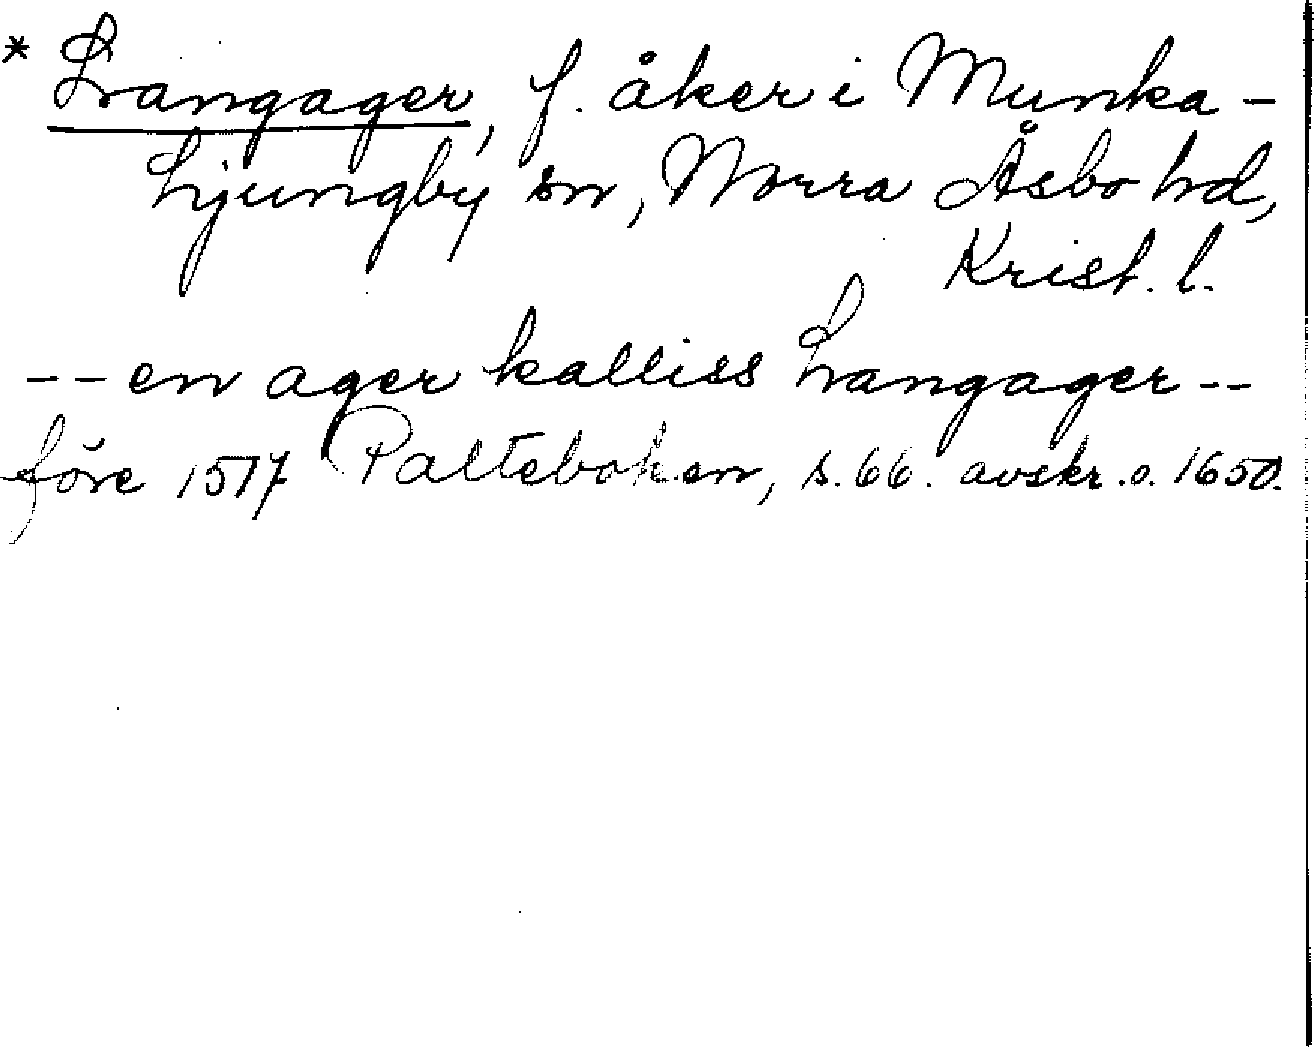 * Langager, f. åker i Munka-
Ljungby sn, Norra Åsbo hd,
Krist. l.
-- en ager kalliss Langager --
före 1517 Palteboken, s. 66. avskr. o. 1650.